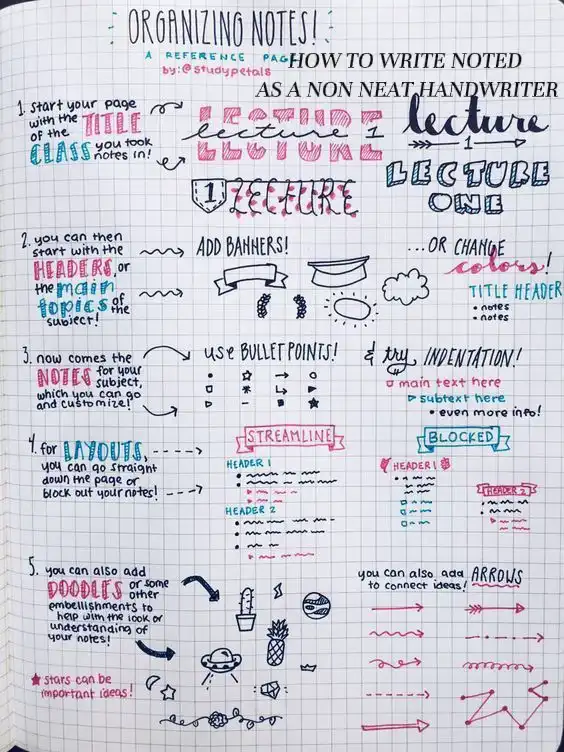 ORGANIZING NOTES!
A REFERENCE PAGE
by: @studypetals
HOW TO WRITE NOTED
AS A NON NEAT HANDWRITER
1. start your page
with the TITLE
of the
CLASS you took
notes in!
LECTURE
lecture 1
LECTURE
lecture
1
1 LECTURE
LECTURE
ONE
2. you can then
start with the
HEADERS, or
the main
topics of
the
subject!
ADD BANNERS!
...OR CHANGE
colors!
TITLE HEADER
• notes
• notes
3. now comes the
NOTES for your
subject,
which you can go
and customize!
use BULLET POINTS!
& try INDENTATION!
main text here
subtext here
• even more info!
4. for LAYOUTS,
you can go straight
down the page or
block out your notes!
STREAMLINE
HEADER 1
HEADER 2
BLOCKED
HEADER 1
HEADER 2
5. you can also add
DOODLES or some
other
embellishments to
help with the look or
understanding of
your notes!
★ stars can be
important ideas!
you can also add ARROWS
to connect ideas!